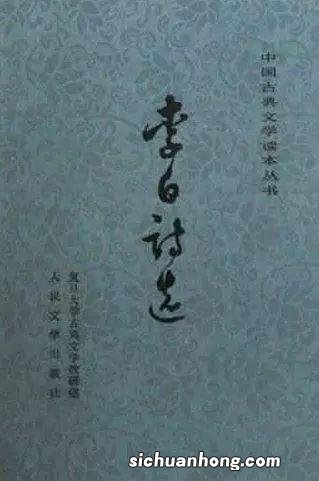 中国古典文学读本丛书
李白詩选
复旦大学古典文学教研组
人民文学出版社
sichuanhong.com